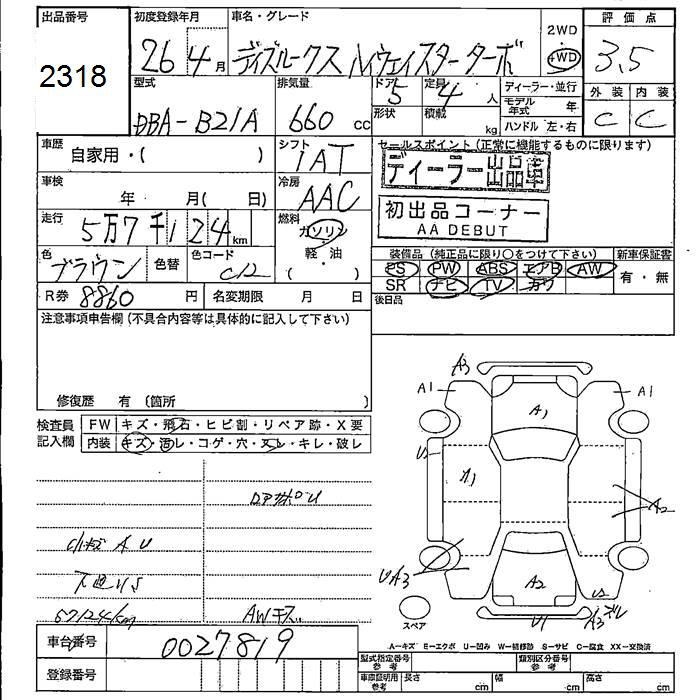 出品番号
2318
初度登録年月
26年 4月
車名・グレード
デイズルークス ハイウェイスターターボ
2WD
4WD
評価点
3.5
型式
DBA-B21A
排気量
660 cc
ドア
5
定員
4 人
形状
積載
kg
ディーラー・並行
モデル年式 年
ハンドル 左・右
外装 内装
C C
車歴
自家用・( )
シフト
IAT
セールスポイント (正常に機能するものに限ります)
ディーラー出品車
車検
年 月( 日)
冷房
AAC
初出品コーナー
AA DEBUT
走行
5万7千124km
燃料
ガソリン
軽・油
( )
色
ブラウン
色替
色コード
C12
装備品 (純正品に限り○をつけて下さい)
新車保証書
PS PW ABS エアB AW
SR ナビ TV カワ
有・無
R券 8860 円
名変期限 月 日
後日品
注意事項申告欄 (不具合内容等は具体的に記入して下さい)
修復歴 有 (箇所 )
検査員記入欄
FW キズ・飛石・ヒビ割・リペア跡・X要
内装 キズ・汚レ・コゲ・穴・ヌレ・キレ・破レ
小キズ A U
下廻りS
57124km
AWキズ
車台番号
0027819
登録番号
A3
A1
A1
A1
US
A1
A2
UA3
A2
US
U1
A3ズレ
スペア
A-キズ E-エクボ U-凹み W-補修跡 S-サビ C-腐食 XX-交換済
型式指定番号 参考
類別区分番号 参考
車庫証明用 参考
長さ cm
幅 cm
高さ cm